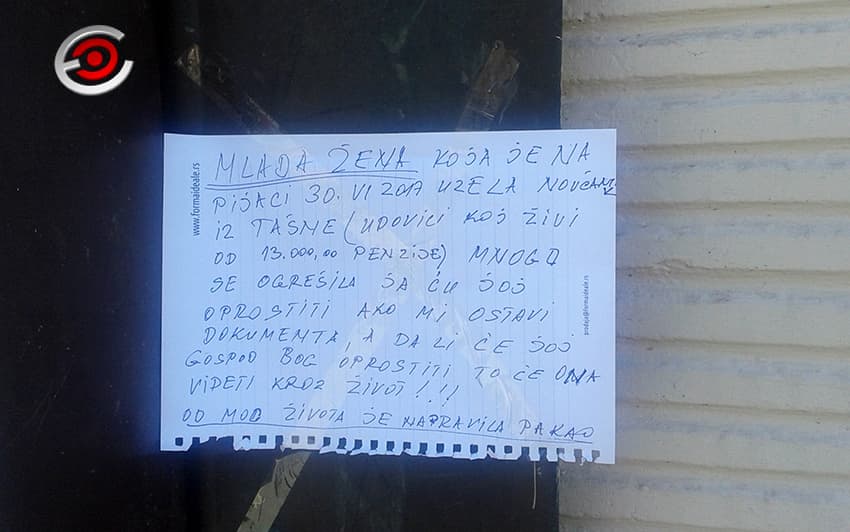 www.formaideale.rs
MLADA ŽENA KOJA JE NA
PIJACI 30. VI 2017 UZELA NOVČANIK
IZ TAŠME (UDOVICI KOJ ŽIVI
OD 13.000,00 PENZIJE) MNOGO
SE OGREŠILA JA ĆU JOJ
OPROSTITI AKO MI OSTAVI
DOKUMENTA, A DA LI ĆE JOJ
GOSPOD BOG OPROSTITI TO ĆE ONA
VIDETI KROZ ŽIVOT!!!
OD MOG ŽIVOTA JE NAPRAVILA PAKAO
prodaja@formaideale.rs